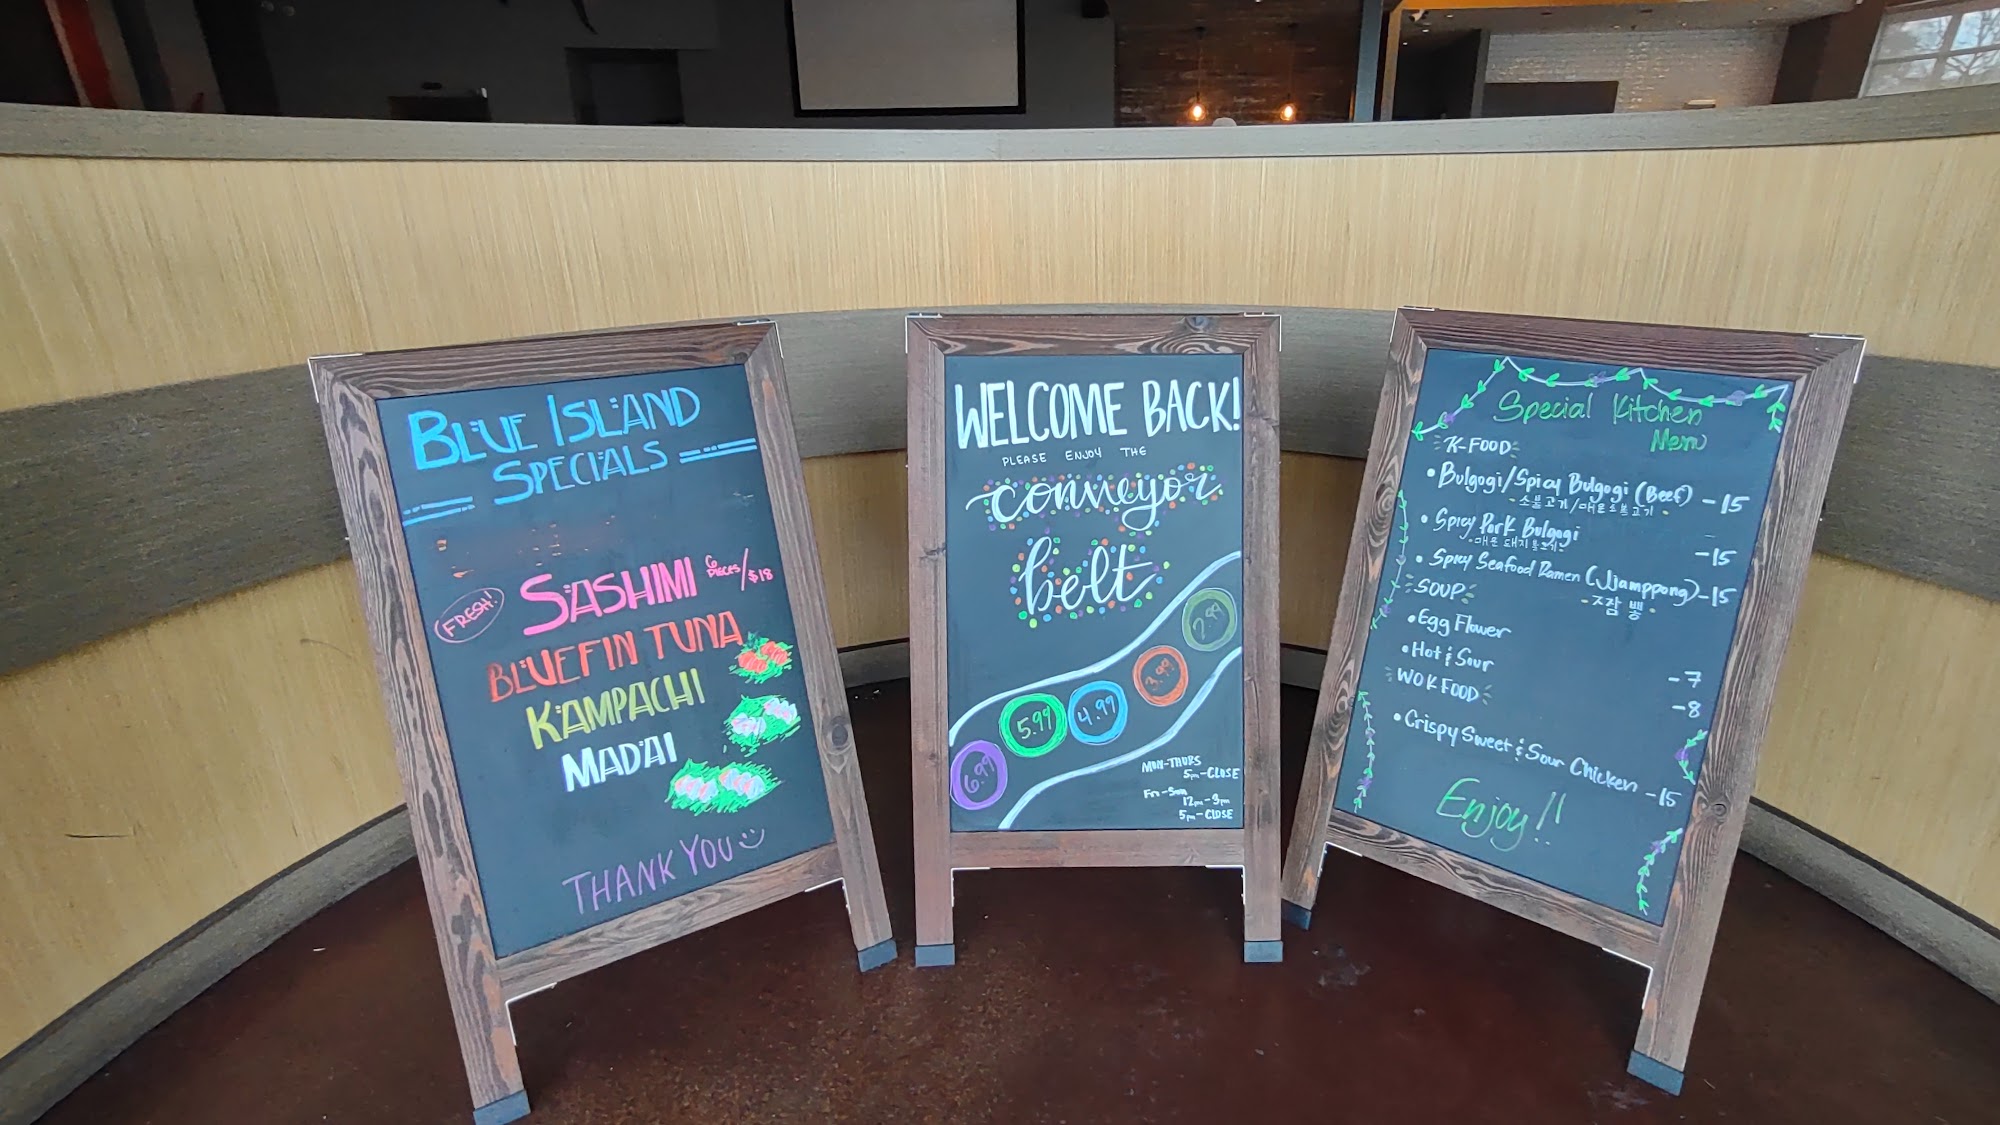 BLUE ISLAND
SPECIALS
FRESH!
SASHIMI 6 PIECES/$18
BLUEFIN TUNA
KAMPACHI
MADAI
THANK YOU
WELCOME BACK!
PLEASE ENJOY THE
conveyor
belt
2.99
3.99
4.99
5.99
6.99
MON-THURS
5pm-CLOSE
Fri-Sun
12pm-3pm
5pm-CLOSE
Special Kitchen
Menu
K-FOOD
• Bulgogi/Spicy Bulgogi (Beef) -15
- 소불고기/매운소불고기 -
• Spicy Pork Bulgogi -15
- 매운 돼지 불고기 -
• Spicy Seafood Ramen (Jjamppong) -15
- 짬뽕 -
SOUP
• Egg Flower -7
• Hot & Sour -8
WOK FOOD
• Crispy Sweet & Sour Chicken -15
Enjoy!!